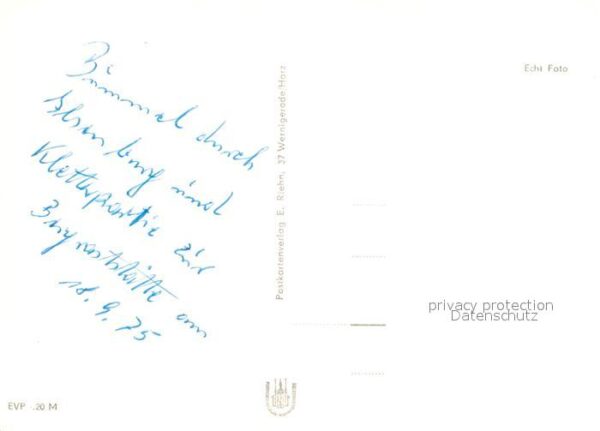 Bummel durch
Ilsenburg und
Kletterpartie zur
am
18.9.75
Postkartenverlag E. Riehn, 37 Wernigerode/Harz
Echt Foto
privacy protection
Datenschutz
EVP -.20 M